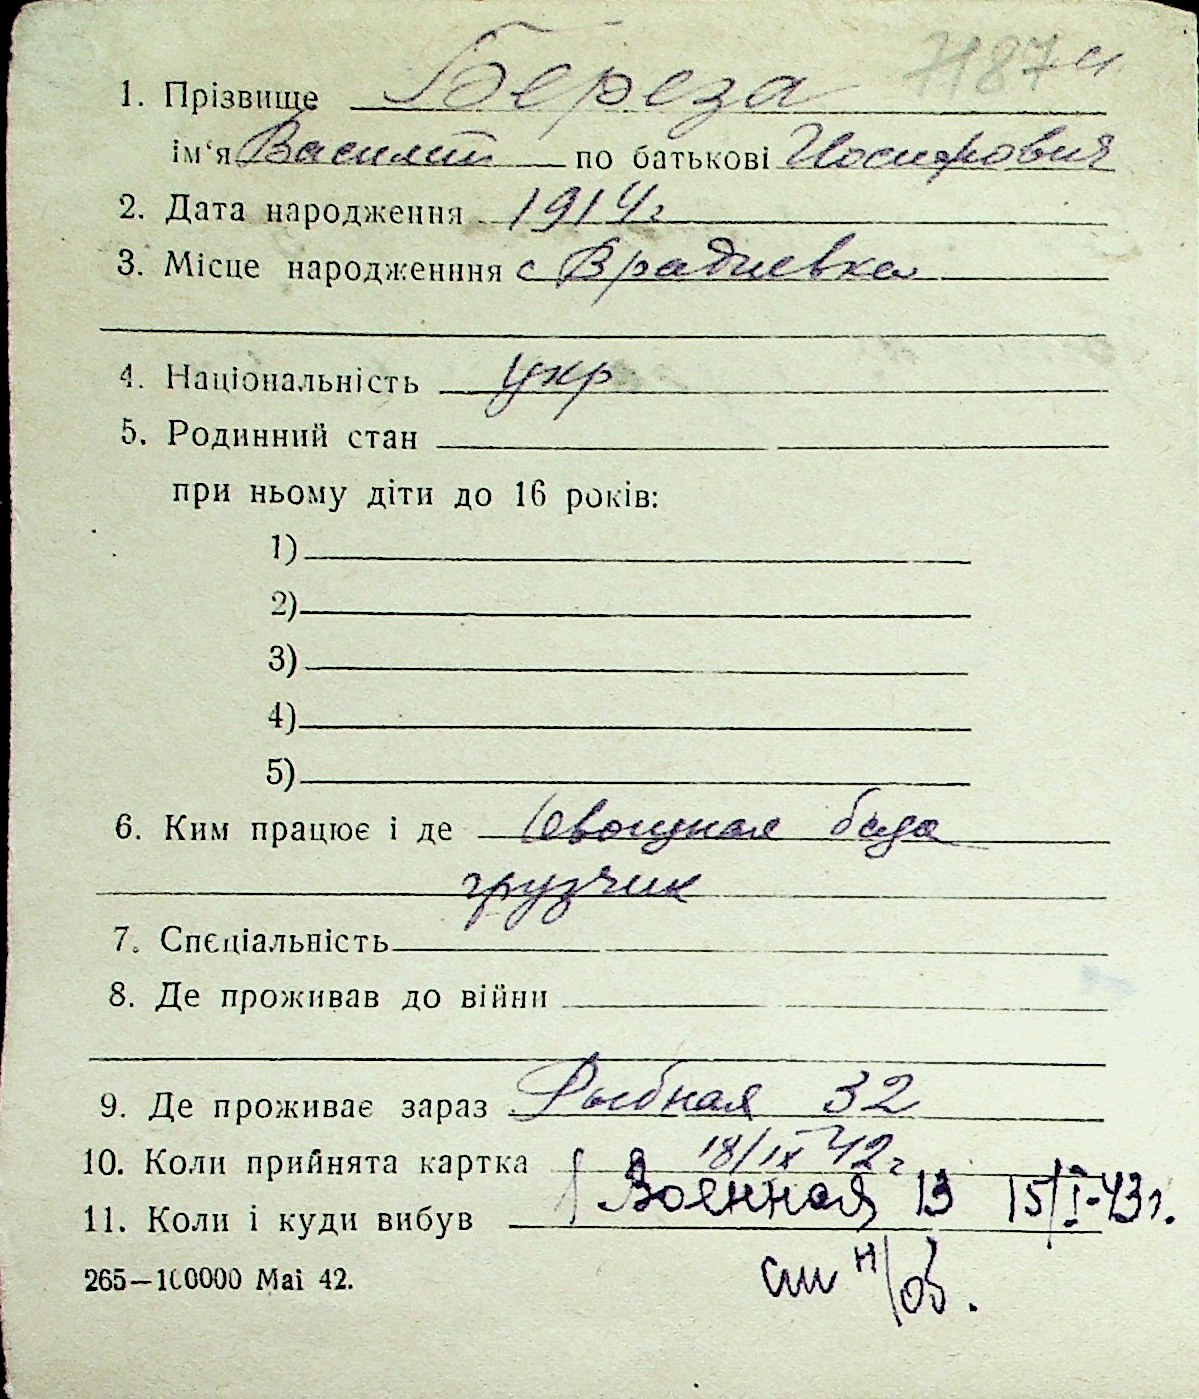 7187
1. Прізвище Береза
ім‘я Василий по батькові Иосифович
2. Дата народження 1914 г
3. Місце народженння с Врадиевка
4. Національність укр
5. Родинний стан
при ньому діти до 16 років:
1)
2)
3)
4)
5)
6. Ким працює і де Овощная база
грузчик
7. Спєціальність
8. Де проживав до війни
9. Де проживає зараз Рыбная 32
10. Коли прийнята картка 18/IX 42 г
Военная 13 15/I-43 г.
11. Коли і куди вибув
265—100000 Mai 42.
см н/об.